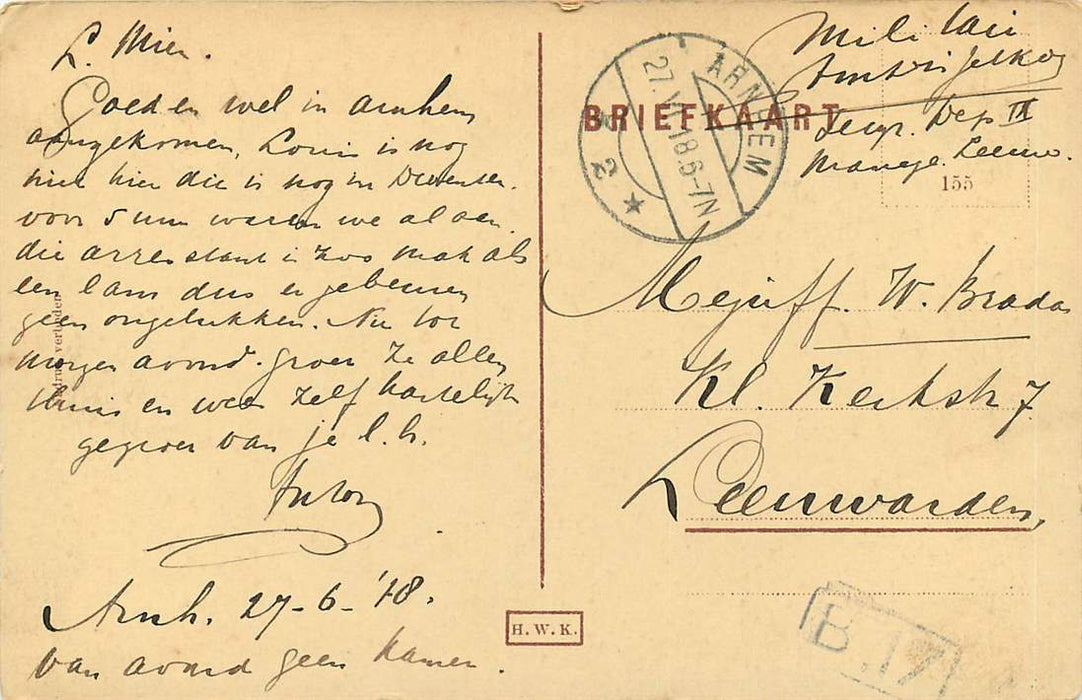 L. Mien.
Goed en wel in Arnhem
aangekomen, Louis is nog
niet hier die is nog in Deventer.
voor 5 uur waren we al aan.
die arrestant is zoo mak als
een lam dus er gebeuren
geen ongelukken. Nu tot
morgen avond. Groet ze allen
thuis en wees zelf hartelijk
gegroet van je l. h.
Anton
Arnh. 27-6-'18.
van avond geen kamer.
verboden
Militair
BRIEFKAART
Dep IX
Manege. Leeuw.
155
ARNHEM
27.VI.18.6-7N
2
Mejuff. W. Breda
Kl. Kerkstr 7
Leeuwarden,
H.W.K.
B.17